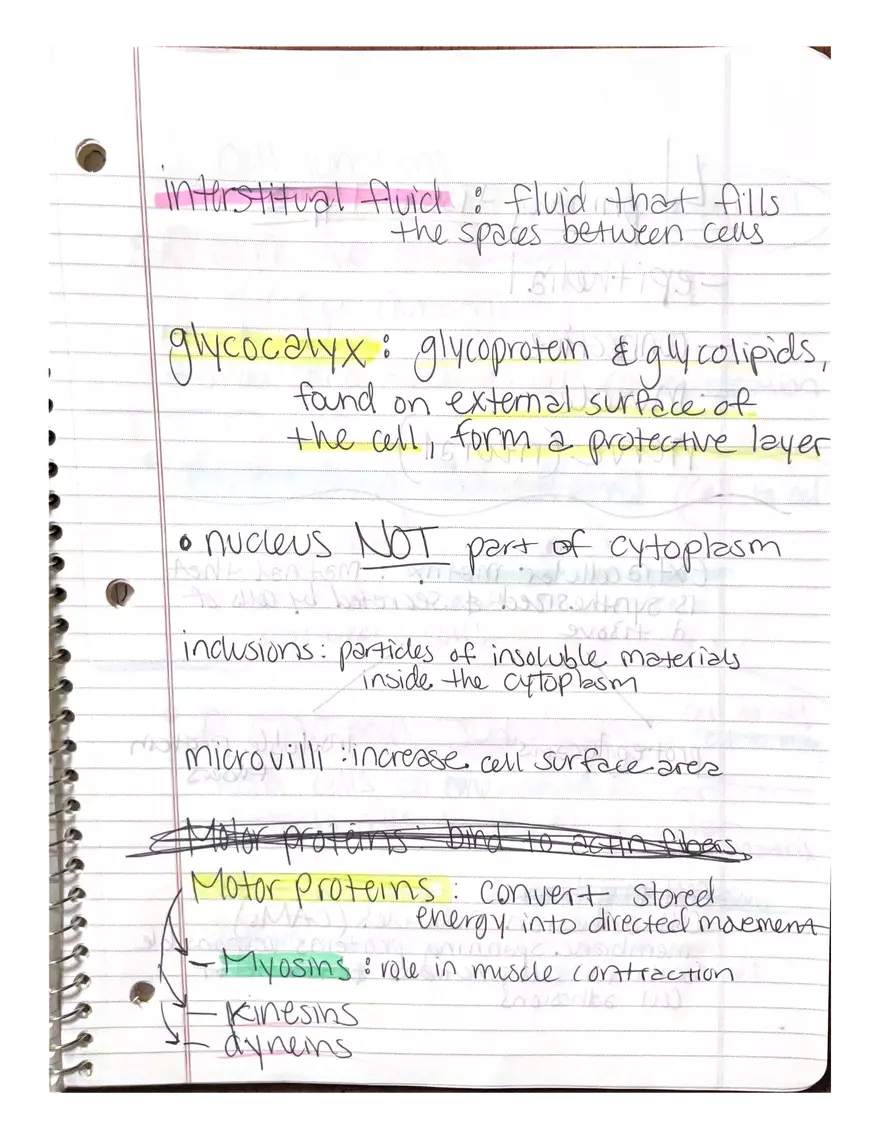 interstitual fluid : fluid that fills
the spaces between cells
glycocalyx : glycoprotein & glycolipids,
found on external surface of
the cell, form a protective layer
• nucleus NOT part of cytoplasm
inclusions : particles of insoluble materials
inside the cytoplasm
microvilli : increase cell surface area
Motor proteins : bind to actin fibers
Motor proteins : convert stored
energy into directed movement
- Myosins : role in muscle contraction
- kinesins
- dyneins